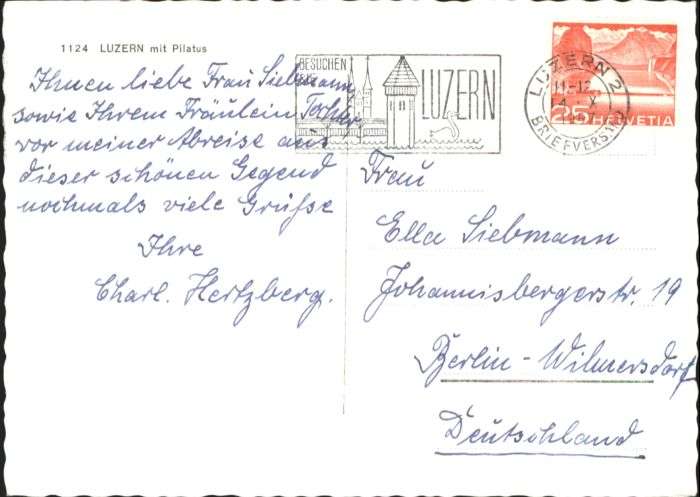 1124 LUZERN mit Pilatus
Ihnen liebe Frau Siebmann
sowie Ihrem Fräulein Tochter
vor meiner Abreise aus
dieser schönen Gegend
nochmals viele Grüße
Ihre
Charl. Hertzberg.
BESUCHEN
LUZERN
LUZERN 2
11-12
BRIEFVERSAND
25 HELVETIA
Frau
Ella Siebmann
Johannisbergerstr. 19
Berlin-Wilmersdorf
Deutschland